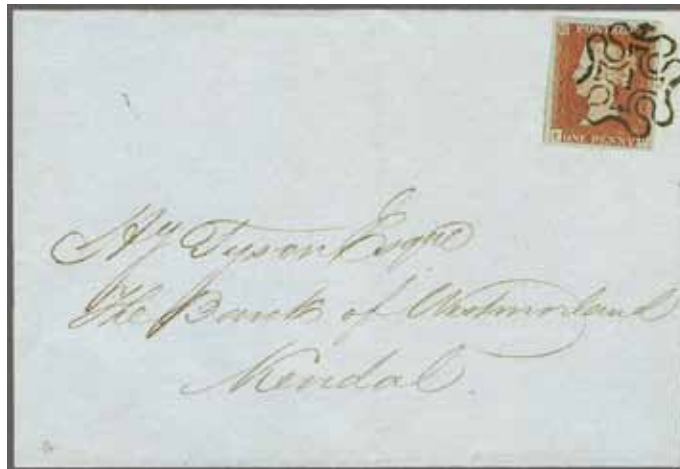 POSTAGE
ONE PENNY
Hy Tyson Esqre
The Bank of Westmorland
Kendal.